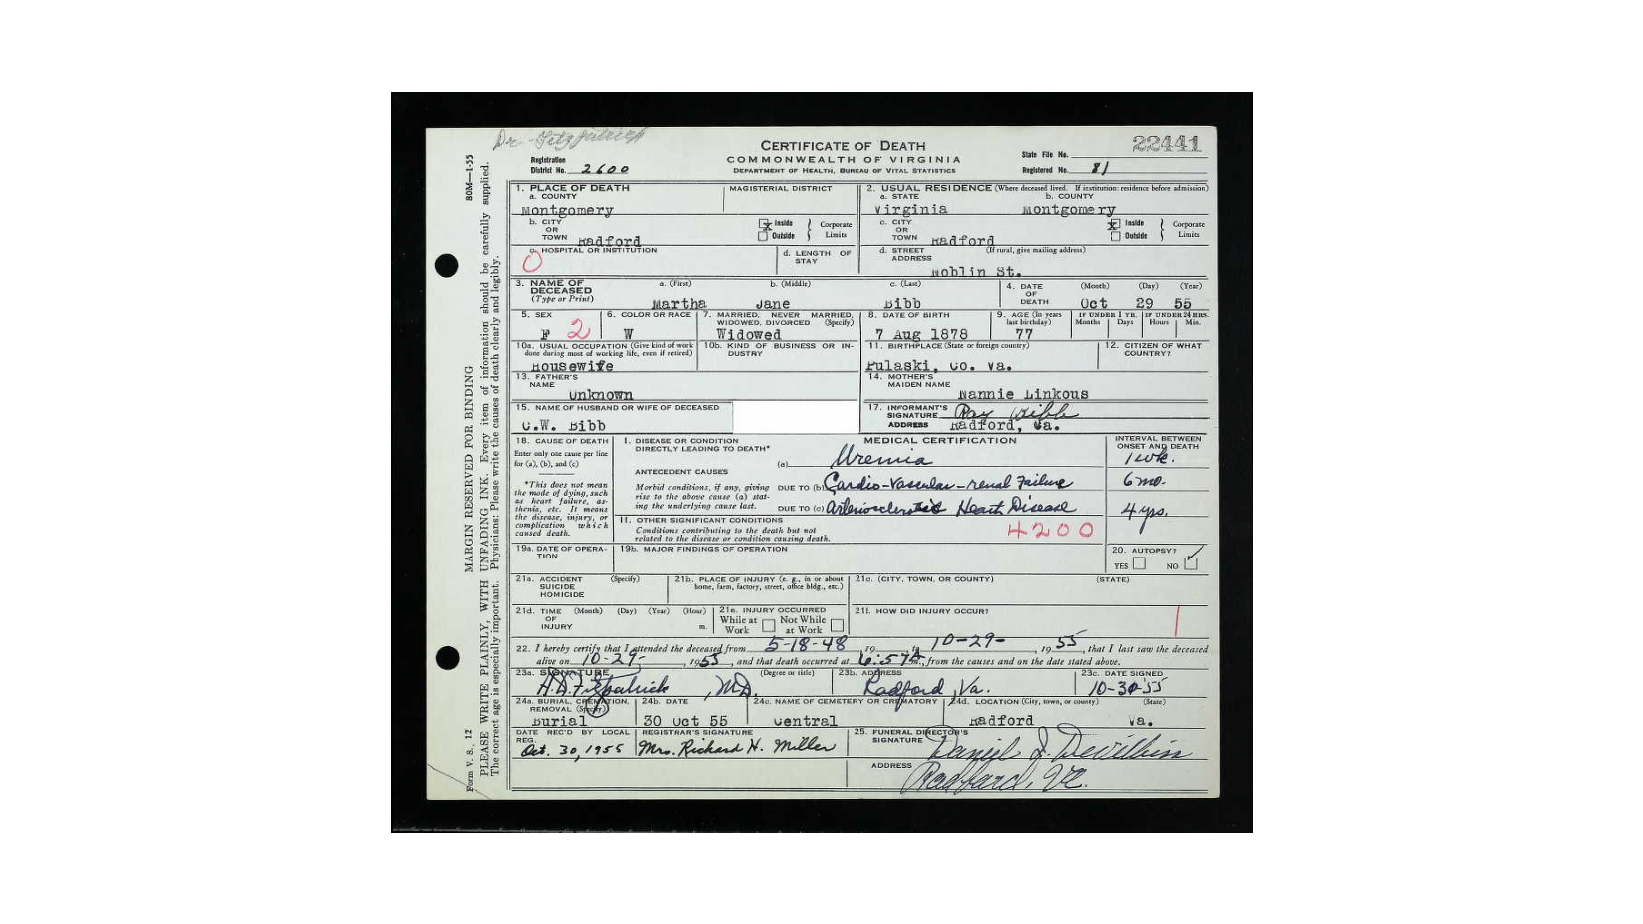 Dr. Fitzpatrick
22441
CERTIFICATE OF DEATH
COMMONWEALTH OF VIRGINIA
DEPARTMENT OF HEALTH, BUREAU OF VITAL STATISTICS
Registration District No. 2600
State File No.
Registered No. 81
80M—1-55
MARGIN RESERVED FOR BINDING
PLEASE WRITE PLAINLY, WITH UNFADING INK. Every item of information should be carefully supplied.
The correct age is especially important. Physicians: Please write the causes of death clearly and legibly.
Form V. S., 12
1. PLACE OF DEATH
a. COUNTY
MAGISTERIAL DISTRICT
Montgomery
2. USUAL RESIDENCE (Where deceased lived. If institution: residence before admission)
a. STATE b. COUNTY
Virginia Montgomery
b. CITY OR TOWN Radford
Inside Outside Corporate Limits
c. CITY OR TOWN Radford
Inside Outside Corporate Limits
c. HOSPITAL OR INSTITUTION
0
d. LENGTH OF STAY
d. STREET ADDRESS (If rural, give mailing address)
Noblin St.
3. NAME OF DECEASED (Type or Print)
a. (First) b. (Middle) c. (Last)
Martha Jane Bibb
4. DATE OF DEATH (Month) (Day) (Year)
Oct 29 55
5. SEX
F 2
6. COLOR OR RACE
W
7. MARRIED, NEVER MARRIED, WIDOWED, DIVORCED (Specify)
Widowed
8. DATE OF BIRTH
7 Aug 1878
9. AGE (In years last birthday)
77
IF UNDER 1 YR. Months Days
IF UNDER 24 HRS. Hours Min.
10a. USUAL OCCUPATION (Give kind of work done during most of working life, even if retired)
Housewife
10b. KIND OF BUSINESS OR INDUSTRY
11. BIRTHPLACE (State or foreign country)
Pulaski, Co. Va.
12. CITIZEN OF WHAT COUNTRY?
13. FATHER'S NAME
Unknown
14. MOTHER'S MAIDEN NAME
Nannie Linkous
15. NAME OF HUSBAND OR WIFE OF DECEASED
C.W. Bibb
17. INFORMANT'S SIGNATURE Ray Bibb
ADDRESS Radford, Va.
18. CAUSE OF DEATH
Enter only one cause per line for (a), (b), and (c)
*This does not mean the mode of dying, such as heart failure, asthenia, etc. It means the disease, injury, or complication which caused death.
MEDICAL CERTIFICATION
INTERVAL BETWEEN ONSET AND DEATH
I. DISEASE OR CONDITION DIRECTLY LEADING TO DEATH*
(a) Uremia 1 wk.
ANTECEDENT CAUSES
Morbid conditions, if any, giving rise to the above cause (a) stating the underlying cause last.
DUE TO (b) Cardio-Vascular-renal Failure 6 mo.
DUE TO (c) Arteriosclerotic Heart Disease 4 yrs.
II. OTHER SIGNIFICANT CONDITIONS
Conditions contributing to the death but not related to the disease or condition causing death.
4200
19a. DATE OF OPERATION
19b. MAJOR FINDINGS OF OPERATION
20. AUTOPSY?
YES NO ✓
21a. ACCIDENT SUICIDE HOMICIDE (Specify)
21b. PLACE OF INJURY (e. g., in or about home, farm, factory, street, office bldg., etc.)
21c. (CITY, TOWN, OR COUNTY) (STATE)
21d. TIME OF INJURY (Month) (Day) (Year) (Hour) m.
21e. INJURY OCCURRED
While at Work Not While at Work
21f. HOW DID INJURY OCCUR?
22. I hereby certify that I attended the deceased from 5-18-48, 19 to 10-29-, 1955, that I last saw the deceased
alive on 10-29-, 1955, and that death occurred at 6:57A m., from the causes and on the date stated above.
23a. SIGNATURE (Degree or title)
A.D. Fitzpatrick, M.D.
23b. ADDRESS
Radford, Va.
23c. DATE SIGNED
10-30-55
24a. BURIAL, CREMATION, REMOVAL (Specify)
Burial
24b. DATE
30 Oct 55
24c. NAME OF CEMETERY OR CREMATORY
Central
24d. LOCATION (City, town, or county) (State)
Radford Va.
DATE REC'D BY LOCAL REG.
Oct. 30, 1955
REGISTRAR'S SIGNATURE
Mrs. Richard H. Miller
25. FUNERAL DIRECTOR'S SIGNATURE
Daniel J. Devilbiss
ADDRESS
Radford, Va.